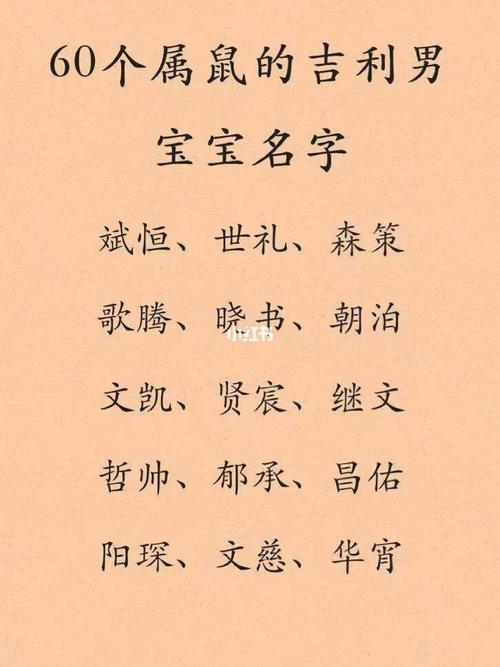 60个属鼠的吉利男
宝宝名字
斌恒、世礼、森策
歌腾、晓书、朝泊
小红书
文凯、贤宸、继文
哲帅、郁承、昌佑
阳琛、文慈、华宵